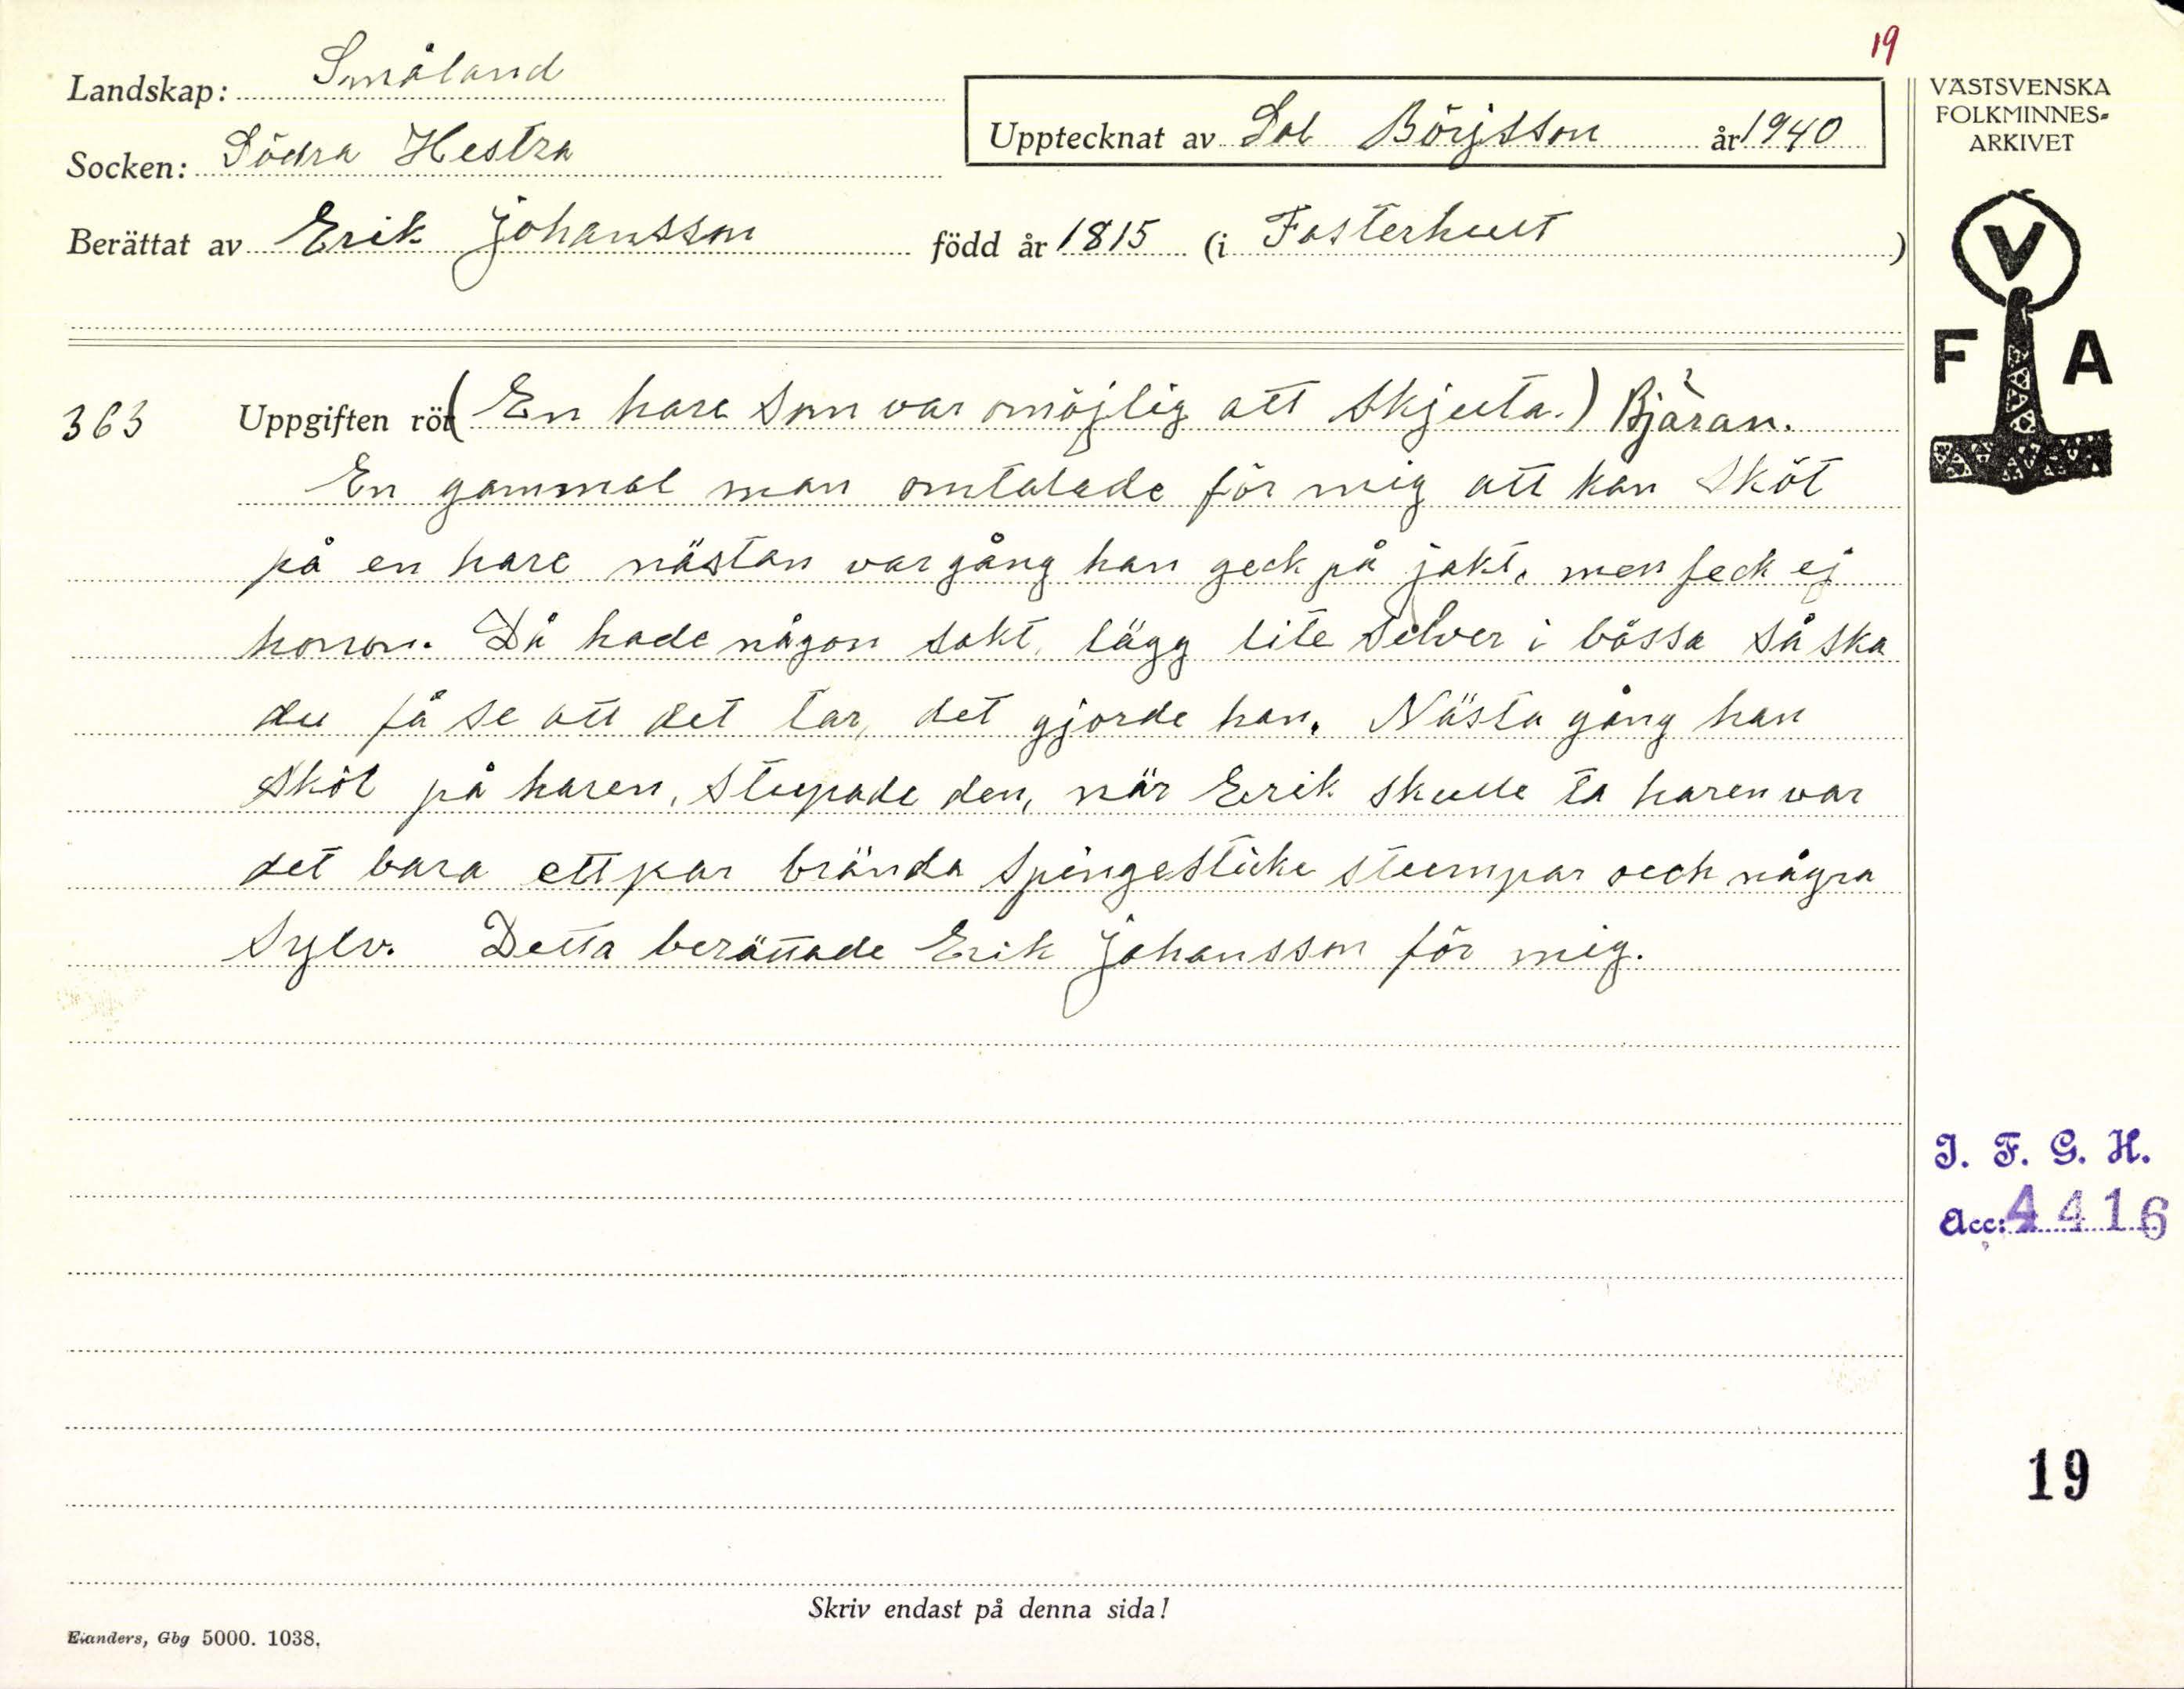 19
Landskap: Småland
Socken: Södra Hestra
Upptecknat av Sal Börjsson år 1940
VÄSTSVENSKA
FOLKMINNES-
ARKIVET
Berättat av Erik Johansson född år 1815 (i Fasterhult )
V
F A
363 Uppgiften rör (En hare som var omöjlig att skjuta.) Bjäran.
En gammal man omtalade för mig att han sköt
på en hare nästan var gång han geck på jakt, men feck ej
honom. Då hade någon sakt, lägg lite silver i bössa så ska
du få se att det tar, det gjorde han. Nästa gång han
sköt på haren, stupade den, när Erik skulle ta haren var
det bara ett par brända spingesticke stumpar och några
sylv. Detta berättade Erik Johansson för mig.
I. F. G. H.
Acc: 4416
19
Skriv endast på denna sida!
Elanders, Gbg 5000. 1038.